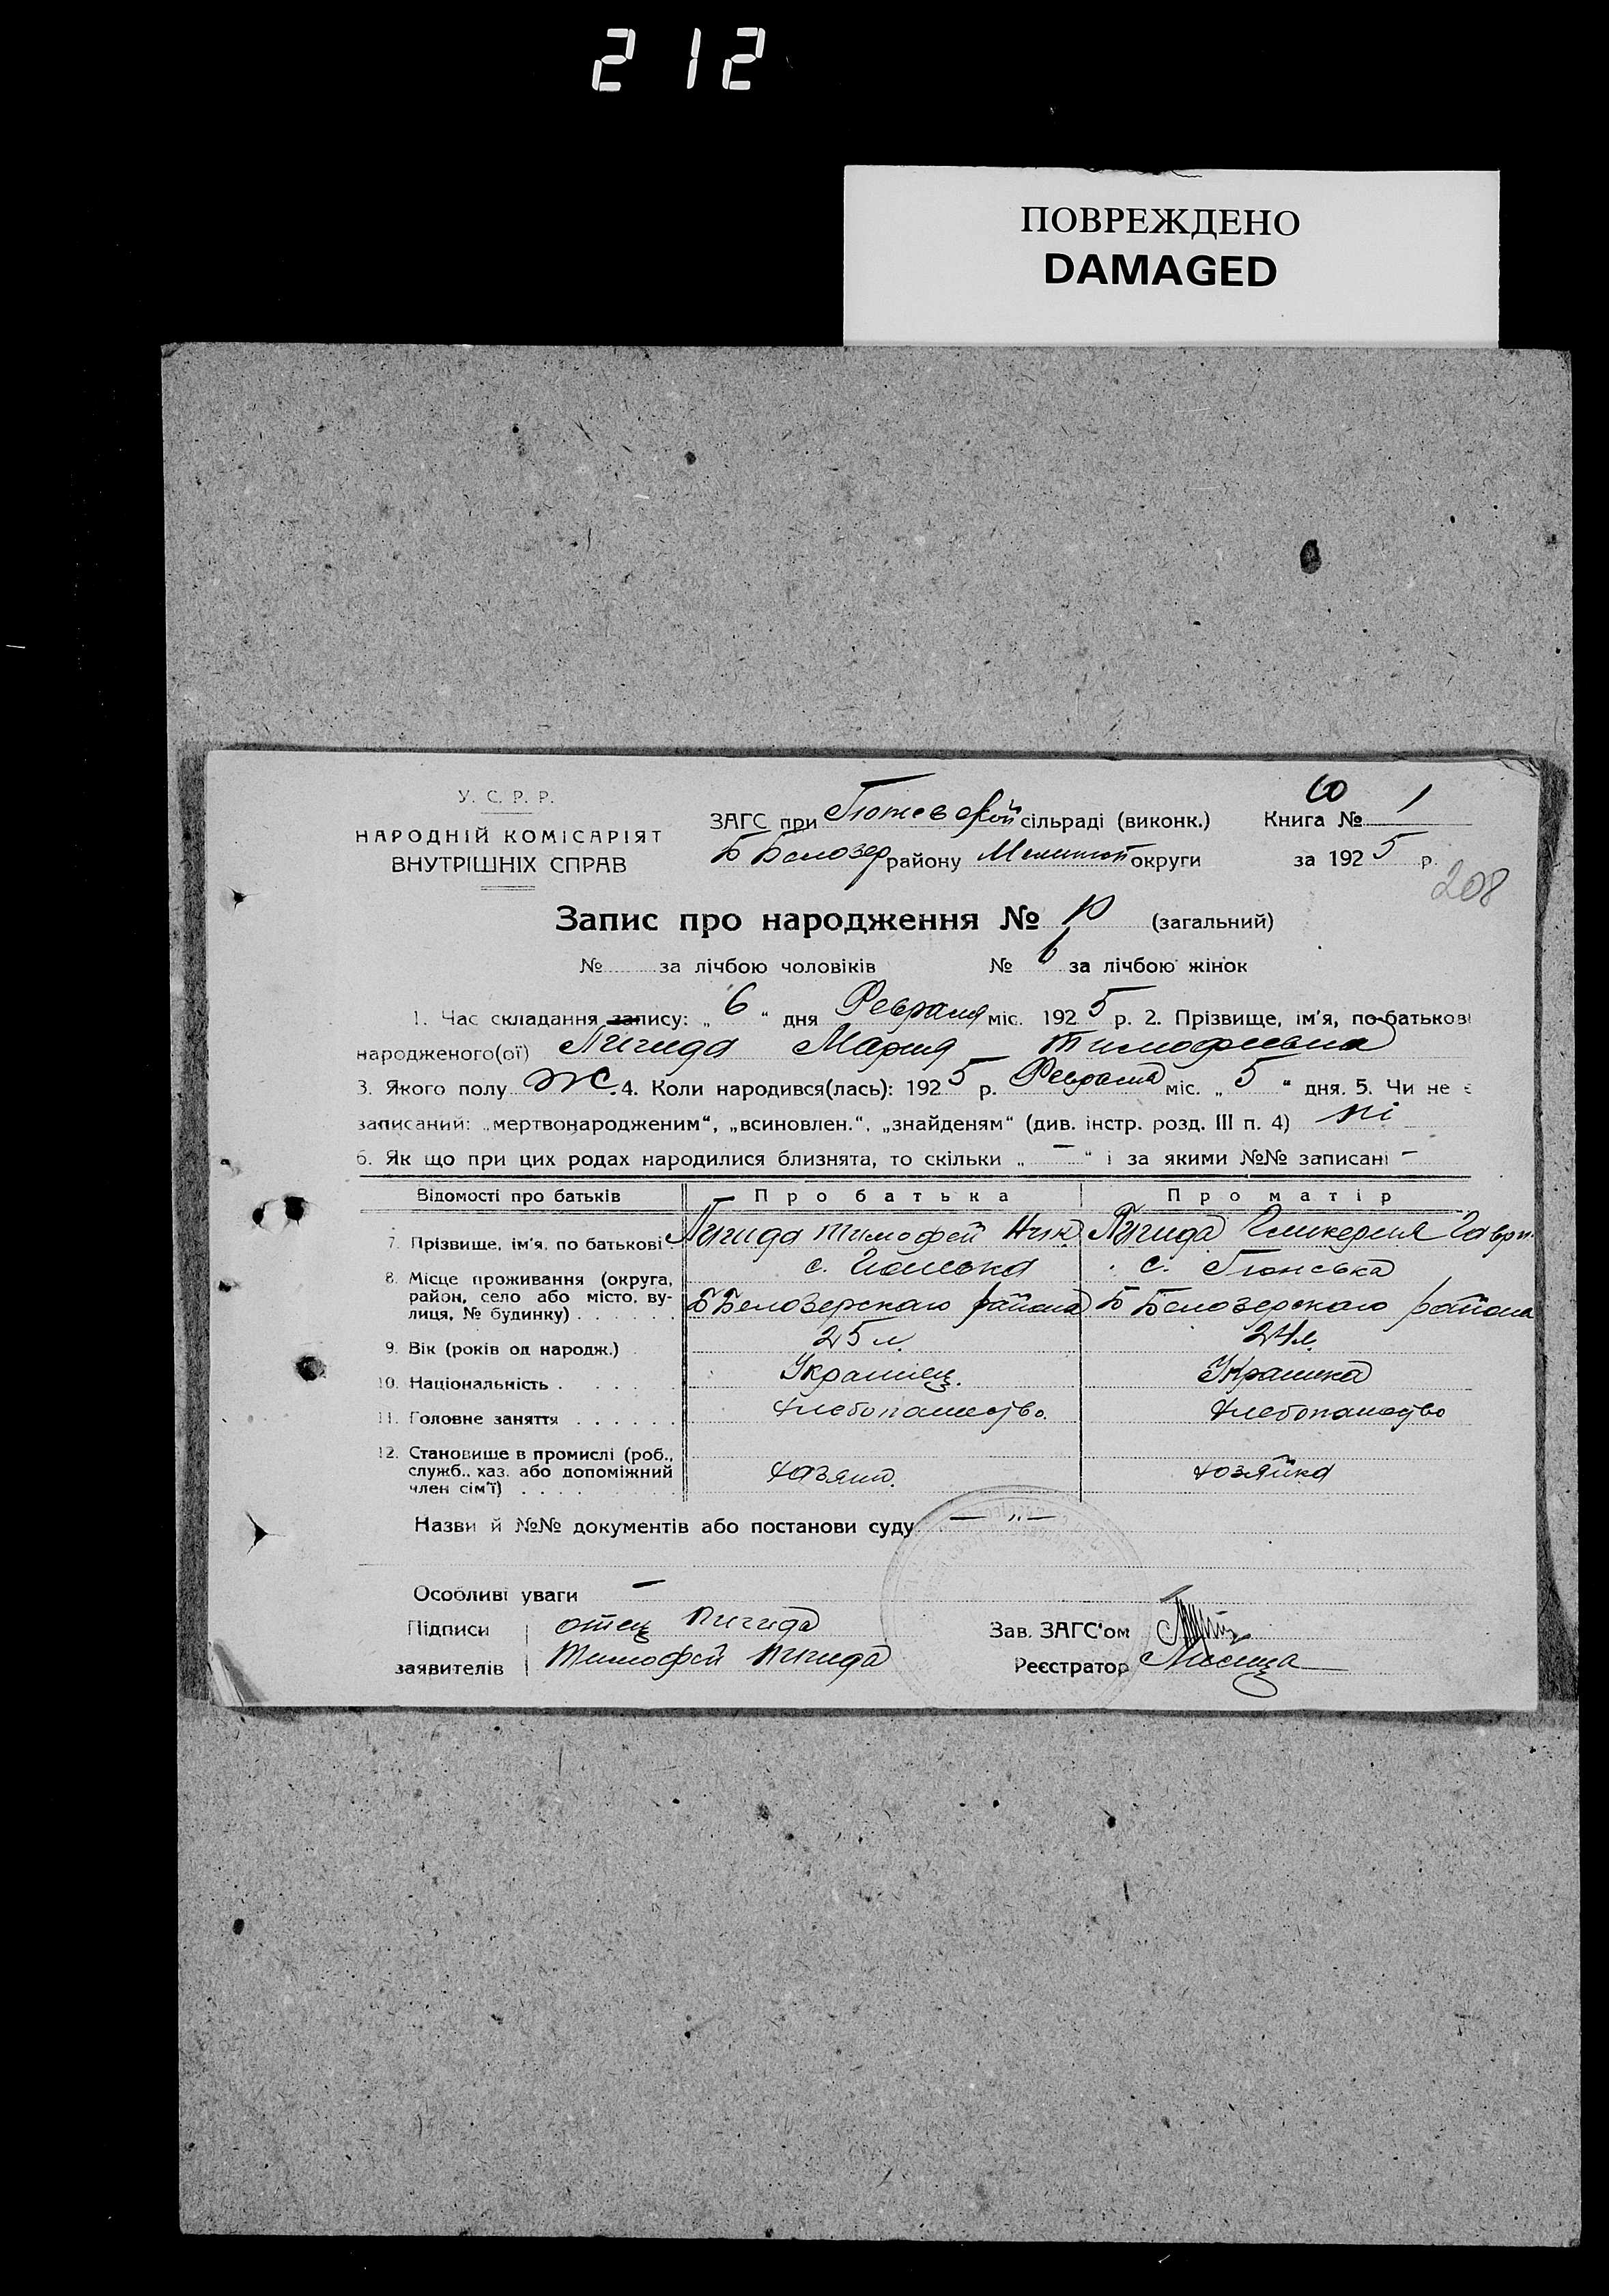 212
ПОВРЕЖДЕНО
DAMAGED
У. С. Р. Р.
НАРОДНІЙ КОМІСАРІЯТ
ВНУТРІШНІХ СПРАВ
ЗАГС при сільраді (виконк.)
Б Белозер району Мелитоп округи
10
Книга № 1
за 1925 р.
208
Запис про народження № 10 (загальний)
№ за лічбою чоловіків № 6 за лічбою жінок
1. Час складання запису: „ 6 “ дня Февраля міс. 1925 р. 2. Прізвище, ім'я, по-батькові
народженого(ої) Пигида Мария Тимофеевна
3. Якого полу Ж. 4. Коли народився(лась): 1925 р. Февраля міс. „ 5 “ дня. 5. Чи не є
записаний: „мертвонародженим“, „всиновлен.“, „знайденям“ (див. інстр. розд. III п. 4) ні
6. Як що при цих родах народилися близнята, то скільки „ — “ і за якими №№ записані —
Відомості про батьків Про батька Про матір
7. Прізвище, ім'я, по батькові. Пигида Тимофей Ник. Пигида Гликерия Гаври.
8. Місце проживання (округа, район, село або місто, вулиця, № будинку) . . . . . . с.
с.
Б Белозерского района Б Белозерского района
9. Вік (років од народж.) 25 л. 24 л.
10. Національність . . . . . Украинец. Украинка
11. Головне заняття . . . . . . Хлебопашество. Хлебопашество
12. Становище в промислі (роб.,
служб., хаз. або допоміжний
член сім'ї) . . . . хозяин. хозяйка
Назви й №№ документів або постанови суду — „ —
Особливі уваги —
Підписи отец Пигида
заявителів Тимофей Пигида
Зав. ЗАГС'ом
Реєстратор